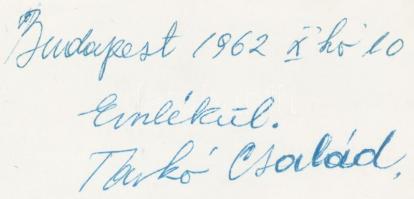 Budapest 1962 X hó 10
Emlékül.
Tarkó Család,